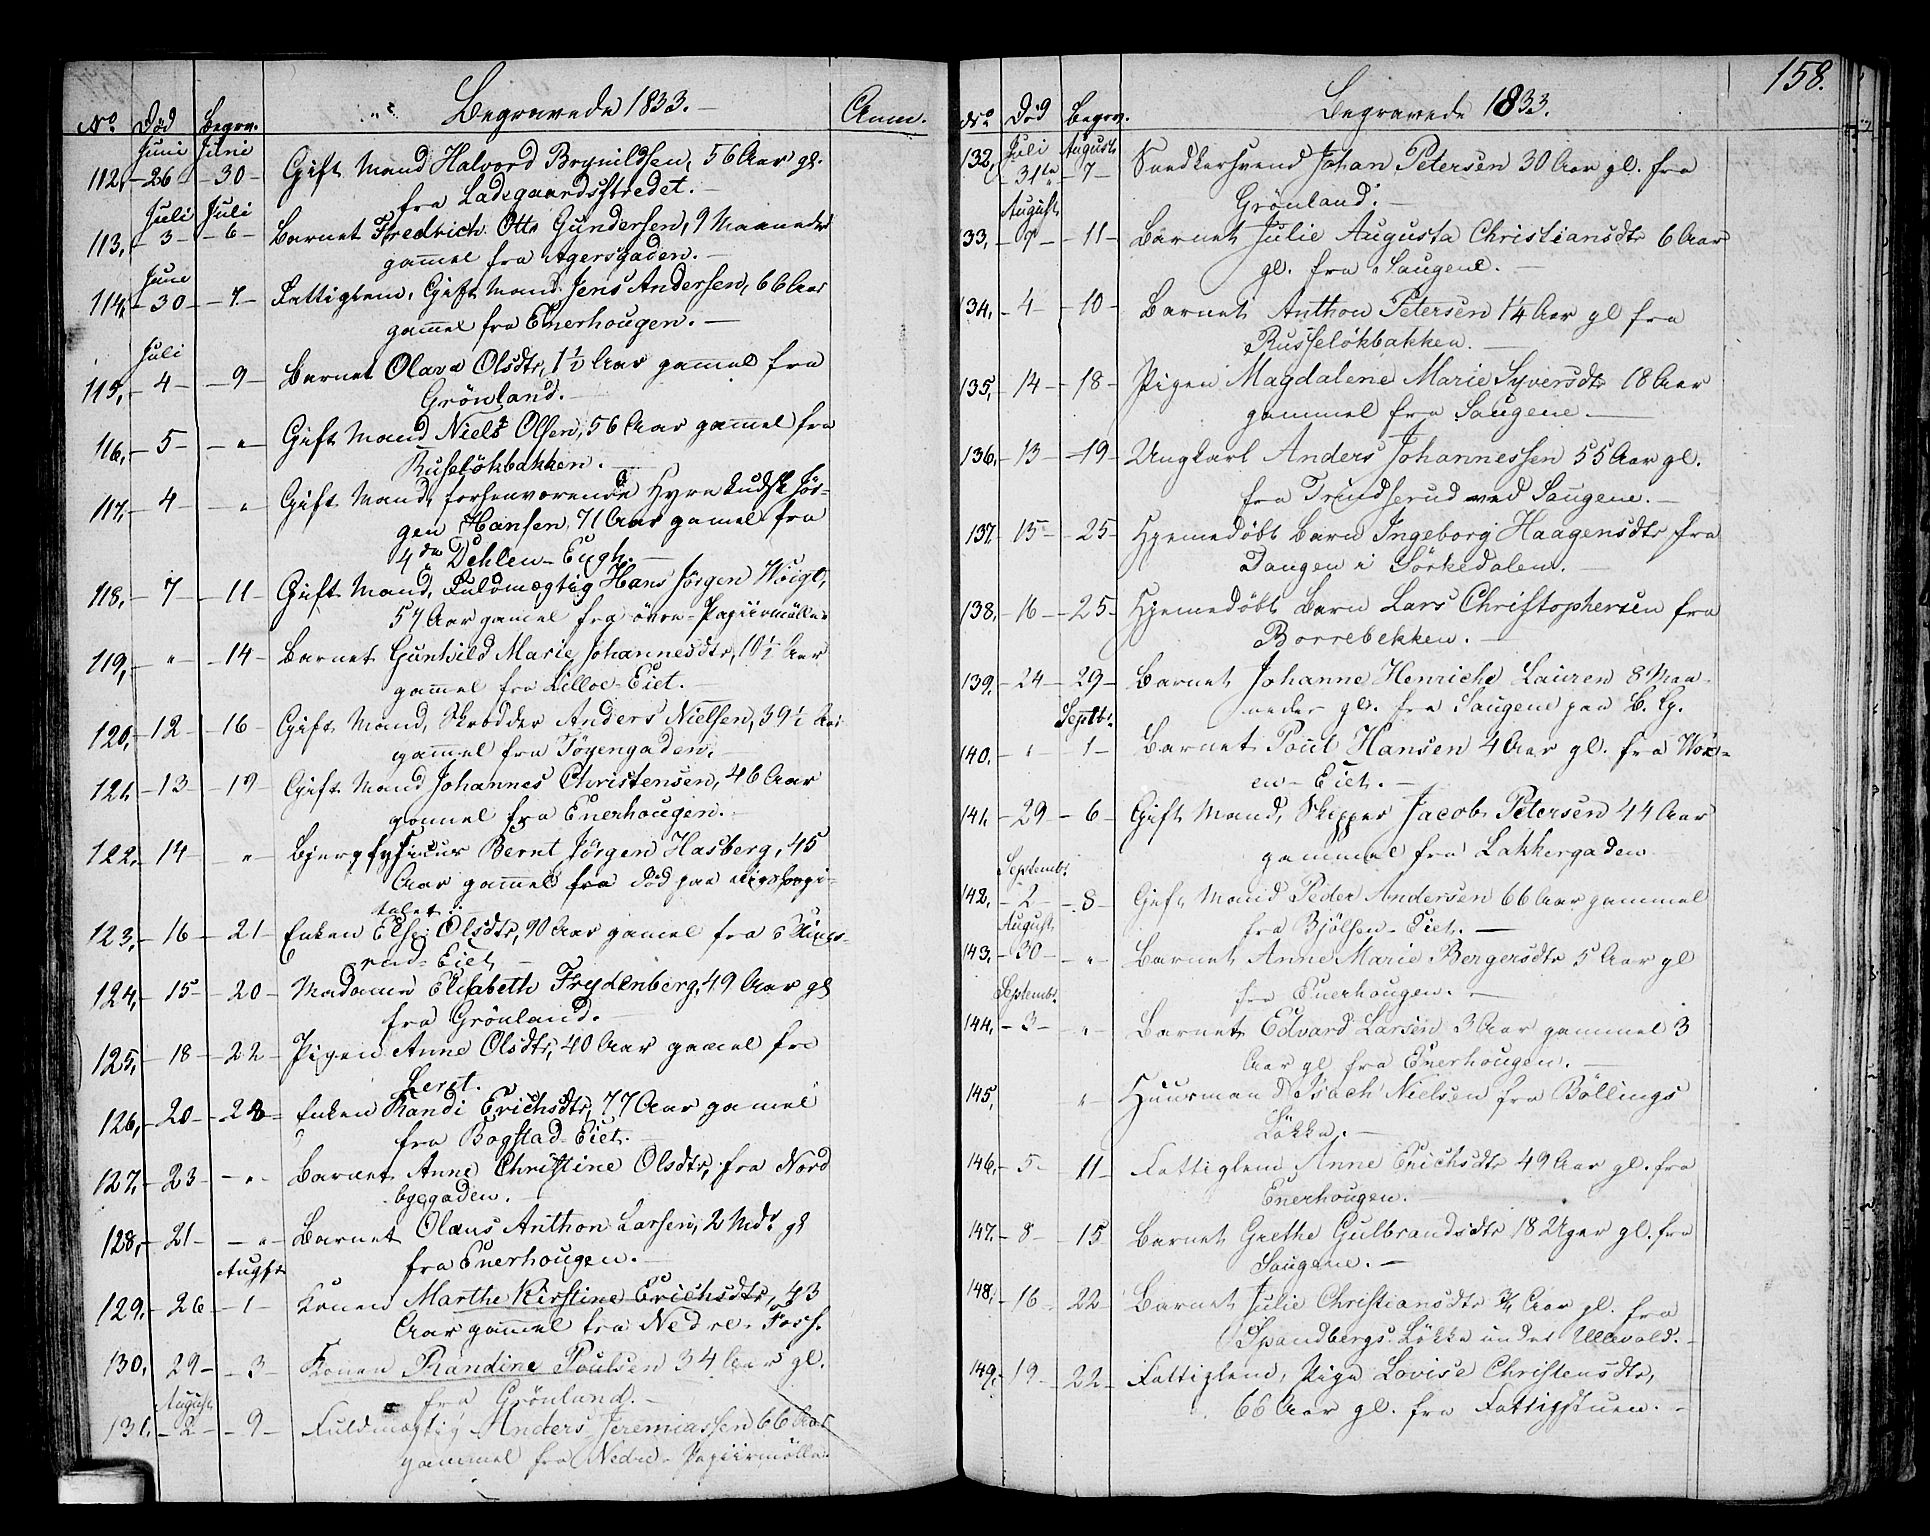 Begravede 1833.
Anm.
No Død Begrv.
Juni Juni
112, 26 30 Gift Mand Halvord Brynildsen, 56 Aar gl.
fra Ladegaardsstredet.
Juli Juli
113, 3 6 Barnet Fredrich Otto Gundersen, 9 Maaneder
gammel fra Agersgaden.
June
114, 30 7 Fattiglem, Gift Mand Jens Andersen, 66 Aar
gammel fra Enerhougen.
Juli
115, 4 9 Barnet Olava Olsdtr, 1½ Aar gammel fra
Grönland.
116, 5 " Gift Mand Niels Olsen, 56 Aar gammel fra
Ruselökbakken.
117, 4 " Gift Mand, forhenværende Hyrekudsk Jör-
gen Hansen, 71 Aar gamel fra
4de Dehlen-Eugh.
118, 7 11 Gift Mand, Fuldmægtig Hans Jörgen Woigt,
57 Aar gamel fra övre-Papiirmölle
119, " 14 Barnet Gunhild Marie Johannesdtr, 10½ Aar
gammel fra Lilloe-Eiet.
120, 12 16 Gift Mand, Skrædder Anders Nielsen, 39½ Aar
gammel fra Töyengaden.
121, 13 19 Gift Mand Johannes Christensen, 46 Aar
gammel fra Enerhougen.
122, 14 " Bjergfysicus Bernt Jörgen Hasberg, 45
Aar gammel fra død paa Rigshospi-
talet.
123, 16 21 Enken Else Olsdtr, 90 Aar gamel fra
rud-Eiet
124, 15 20 Madame Elisabeth Frydenberg, 49 Aar gl
fra Grönland.
125, 18 22 Pigen Anne Olsdtr, 40 Aar gamel fra
Leret.
126, 20 28 Enken Randi Erichsdtr, 77 Aar gamel
fra Bogstad-Eiet.
127, 23 " Barnet Anne Christine Olsdtr, fra Nord
byegaden.
128, 21 " Barnet Olaus Anthon Larsen, 2 Mdr gl
fra Enerhougen.
Augst
129, 26 1 Konen Marthe Kirstine Erichsdtr, 43
Aar gammel fra Nedre-Foss.
130, 29 3 Konen Randine Poulsen 34 Aar gl.
fra Grönland.
August
131. 2 9 Fuldmægtig Anders Jeremiassen 66 Aar
gammel fra Nedre-Papiirmölle.
158.
Begravede 1833.
No Död Begrv.
Juli August
132, 31te 7 Snedkersvend Johan Petersen 30 Aar gl. fra
Grönland.
August
33, 11 Barnet Julie Augusta Christiansdtr 6 Aar
gl. fra Saugene.
134, 4 10 Barnet Anthon Petersen 1¼ Aar gl fra
Russelökbakken.
135, 14 18 Pigen Magdalene Marie Syversdtr 18 Aar
gammel fra Saugene.
136, 13 19 Ungkarl Anders Johannessen 55 Aar gl.
fra Trindserud ved Saugene.
137. 15 25 Hjemedöbt Barn Ingeborg Haagensdtr fra
Tangen i Sörkedalen.
138, 16 25 Hjemedöbt Barn Lars Christophersen fra
Borrebekken.
139, 24 29 Barnet Johanne Henriche Lauren 8 Maa-
neder gl. fra Saugene paa B. Eg.
Septbr.
140. " 1 Barnet Poul Hansen 4 Aar gl. fra Wök-
en-Eiet.
141. 29 6 Gift Mand, Skipper Jacob Petersen 44 Aar
gammel fra Lakkergaden
Septembr.
142. 2 8 Gift Mand Peder Andersen 66 Aar gammel
fra Bjölsen-Eiet.
August
143. 30 " Barnet Anne Marie Bergersdtr 5 Aar gl
fra Enerhougen.
Septembr.
144. 3 " Barnet Edvard Larsen 3 Aar gammel 3
Aar gl fra Enerhougen.
145, " Huusmand Isach Nielsen fra Böllings
Lökke.
146. 5 11 Fattiglem Anne Erichsdtr 49 Aar gl. fra
Enerhougen.
147. 8 15 Barnet Grethe Gulbrandsdtr 18 Uger gl. fra
Saugene.
148, 16 22 Barnet Julie Christiansdtr ¾ Aar gl. fra
Spandbergs Lökke under Ullevold.
149, 19 22 Fattiglem, Pige Lovise Christensdtr,
66 Aar gl. fra Fattigstuen.